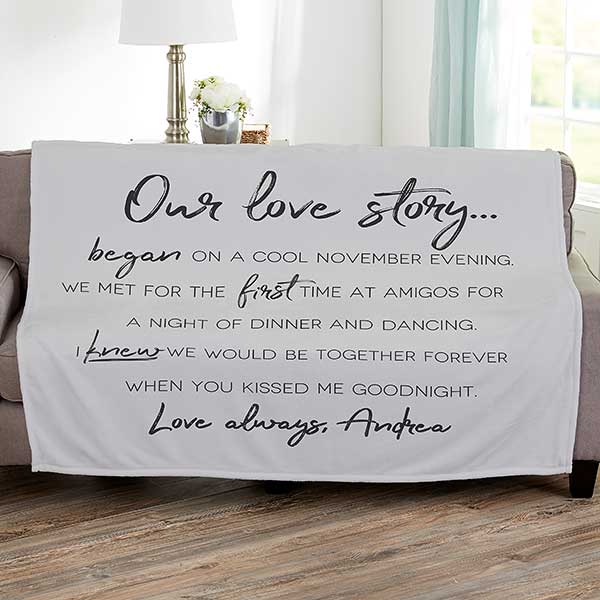 Our love story...
began ON A COOL NOVEMBER EVENING.
WE MET FOR THE first TIME AT AMIGOS FOR
A NIGHT OF DINNER AND DANCING.
I knew WE WOULD BE TOGETHER FOREVER
WHEN YOU KISSED ME GOODNIGHT.
Love always, Andrea